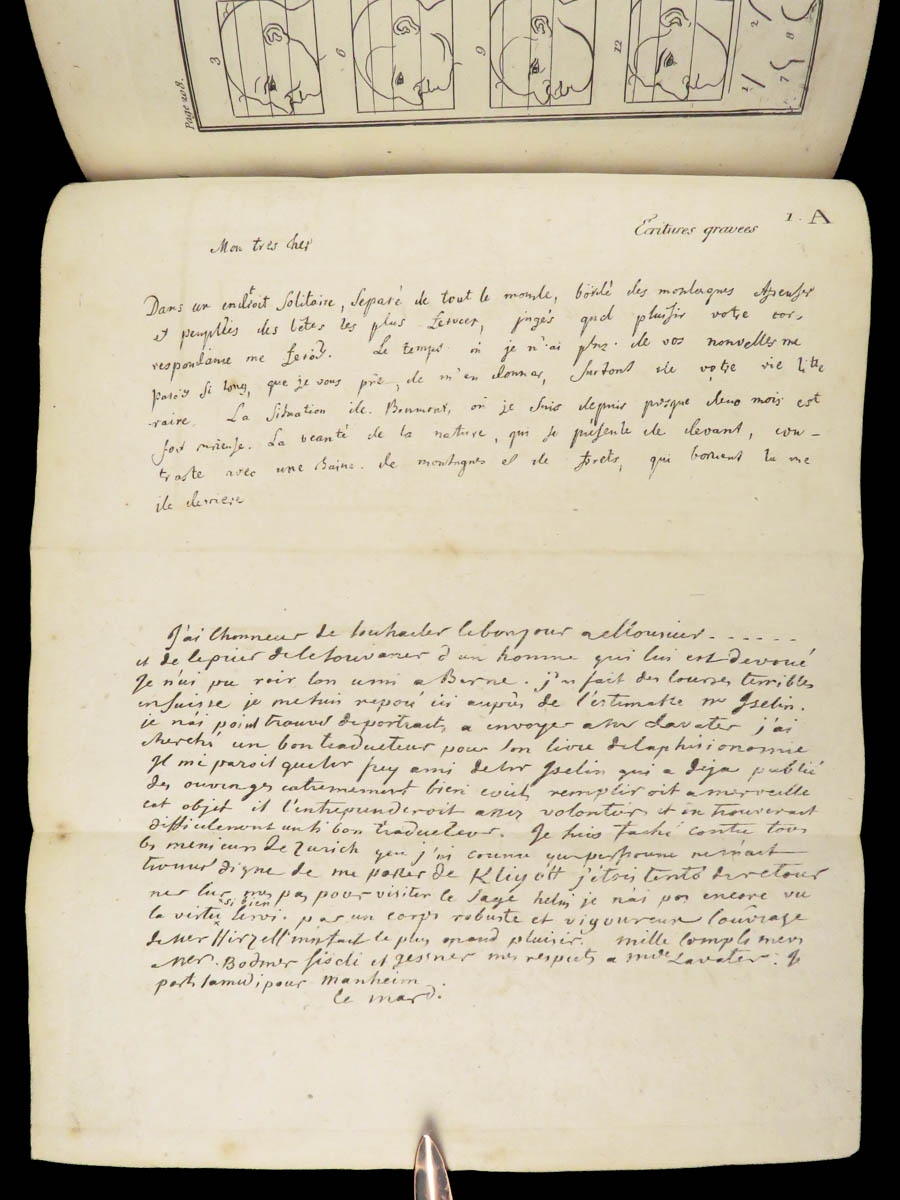 Page 208.
3
6
9
12
1
2
7
8
Ecritures gravees
1. A
Mon tres cher
Dans un endroit Solitaire, Separé de tout le monde, bordé des montagnes
et peupllés des bêtes les plus feroces, jugés quel plaisir votre cor-
respondance me feroit. Le temps où je n'ai de vos nouvelles me
parois si long, que je vous prie, de m'en donner, Surtout de votre vie litte
raire. La Situation de. Bonmont, où je Suis depuis presque deux mois est
fort curieuse. La beauté de la nature, qui se présente de devant, con-
traste avec une Baine. de montagnes et de forets, qui bornent la vue
de derriere
J'ai lhonneur de souhaiter lebonjour a Monsieur . . . . . .
et de leprier de le souvener d'un homme qui lui est devoué
Je n'ai pu voir son ami a Berne. j'ai fait des courses terribles
en Suisse je me suis reposé ici auprès de l'estimable mr Iselin.
je n'ai point trouvé de portraits a envoyer a Mr Lavater j'ai
cherché un bon traducteur pour son livre de la phisionomie
Il me paroit que Mr frey ami de Mr Iselin qui a deja publié
des ouvrages extremement bien ecrits rempliroit a merveille
cet objet il l'entreprenderoit assez volontiers et on trouverait
difficilement un si bon traducteur. Je suis faché contre tous
les messieurs de Zurich que j'ai connu que personne ne m'ait
trouvé digne de me parler de Kliyogg j'etois tenté de retour
ner sur mes pas pour visiter le Sage helas je n'ai pas encore vu
la vertu si bien Servi par un corps robuste et vigoureux l'ouvrage
de Mer Hirzell m'a fait le plus grand plaisir. mille complimens
a Mer. Bodmer füssli et gesner mes respects a mde Lavater. Je
parts samedi pour Manheim
Ce mardi